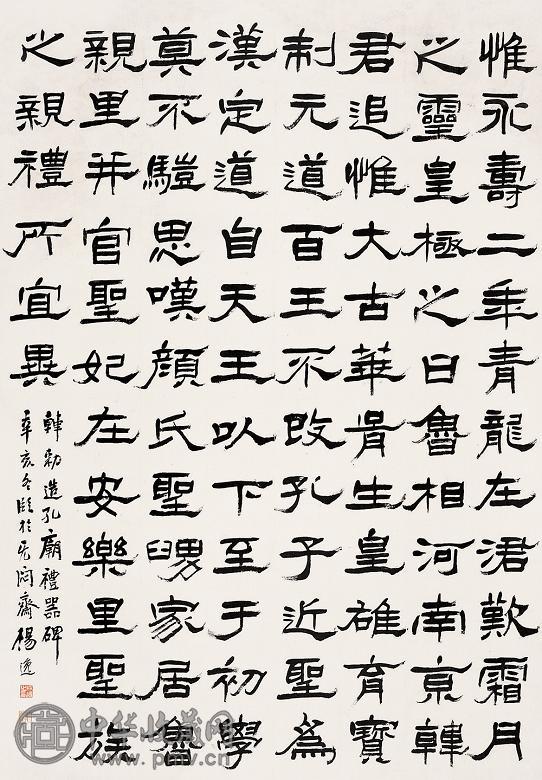 惟永壽二年青龍在涒歎霜月
之靈皇極之日魯相河南京韓
君追惟大古華胥生皇雄育寶
制元道百王不改孔子近聖爲
漢定道自天王以下至于初學
莫不思嘆顏氏聖舅家居魯
親里并官聖妃在安樂里聖族
之親禮所宜異
韓勑造孔廟禮器碑
辛亥冬臨於无悶齋楊逸
中华收藏网